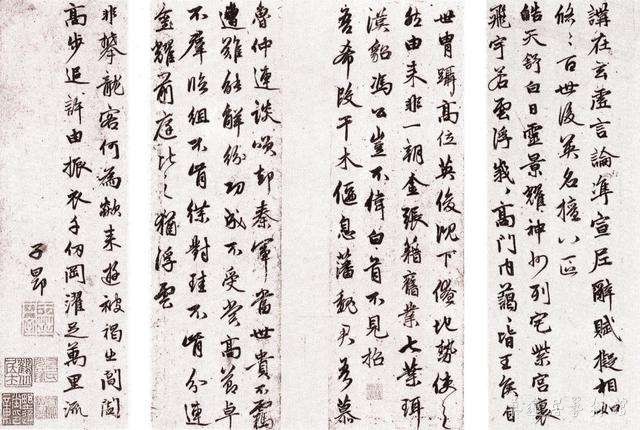 講在玄虛言論準宣尼辭賦擬相如
悠々百世後英名擅八區
皓天舒白日靈景耀神州列宅紫宮裏
飛宇若雲浮峨々高門內藹々皆王侯自
世胄躡高位英俊沈下僚地勢使之
然由來非一朝金張籍舊業七葉珥
漢貂馮公豈不偉白首不見招
吾希段干木偃息藩魏君吾慕
魯仲連談笑却秦軍當世貴不羈
遭難能解紛功成不受賞高節卓
不羣臨組不肯緤對珪不肯分連
璽耀前庭比之猶浮雲
非攀龍客何為欻來遊被褐出閶闔
高步追許由振衣千仞岡濯足萬里流
子昂